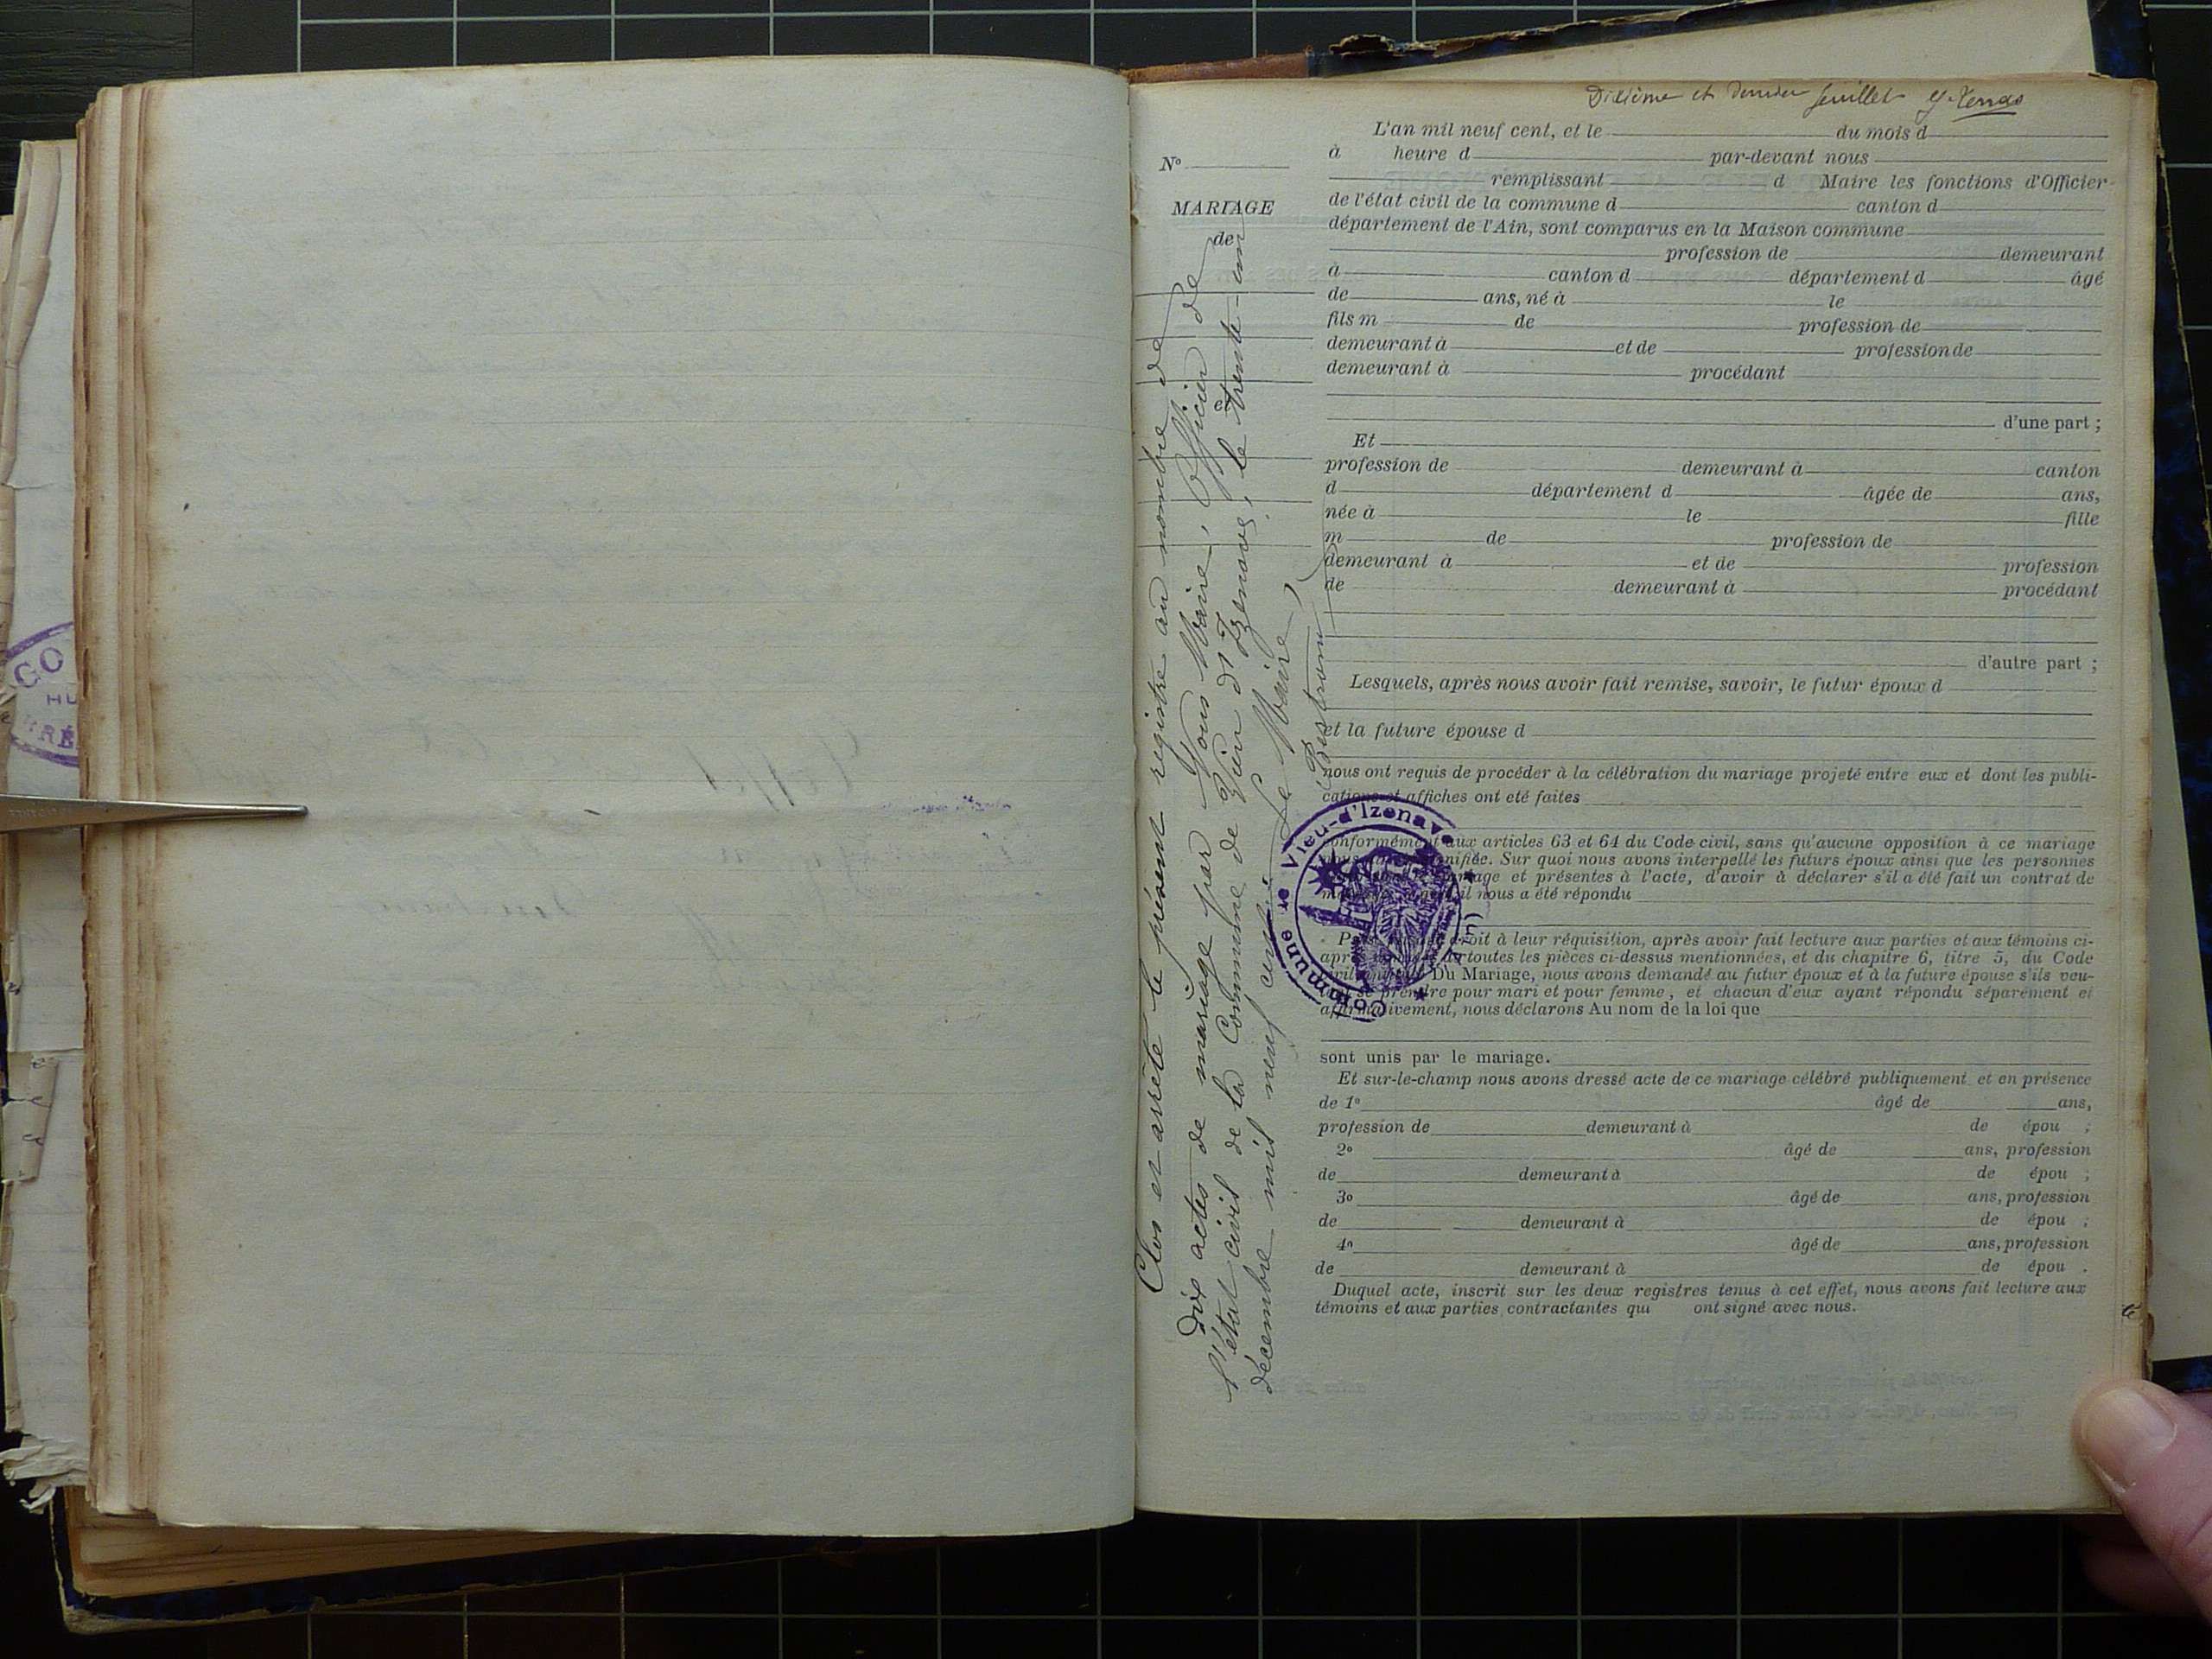 Dixième et dernier feuillet
L'an mil neuf cent, et le du mois d
à heure d par-devant nous
remplissant d Maire les fonctions d'Officier
de l'état civil de la commune d canton d
département de l'Ain, sont comparus en la Maison commune
profession de demeurant
à canton d département d âgé
de ans, né à le
fils m de profession de
demeurant à et de profession de
demeurant à procédant
d'une part ;
Et
profession de demeurant à canton
d département d âgée de ans,
née à le fille
m de profession de
demeurant à et de profession
de demeurant à procédant
d'autre part ;
Lesquels, après nous avoir fait remise, savoir, le futur époux d
et la future épouse d
nous ont requis de procéder à la célébration du mariage projeté entre eux et dont les publi-
cations et affiches ont eté faites
conformément aux articles 63 et 64 du Code civil, sans qu'aucune opposition à ce mariage
nifiée. Sur quoi nous avons interpellé les futurs époux ainsi que les personnes
mariage et présentes à l'acte, d'avoir à déclarer s'il a été fait un contrat de
il nous a été répondu
droit à leur réquisition, après avoir fait lecture aux parties et aux témoins ci-
après de toutes les pièces ci-dessus mentionnées, et du chapitre 6, titre 5, du Code
civil Du Mariage, nous avons demandé au futur époux et à la future épouse s'ils veu-
lent se prendre pour mari et pour femme, et chacun d'eux ayant répondu séparément et
affirmativement, nous déclarons Au nom de la loi que
sont unis par le mariage.
Et sur-le-champ nous avons dressé acte de ce mariage célébré publiquement et en présence
de 1º âgé de ans,
profession de demeurant à de épou ;
2º âgé de ans, profession
de demeurant à de épou ;
3º âgé de ans, profession
de demeurant à de épou ;
4º âgé de ans, profession
de demeurant à de épou .
Duquel acte, inscrit sur les deux registres tenus à cet effet, nous avons fait lecture aux
témoins et aux parties contractantes qui ont signé avec nous.
Nº
MARIAGE
de
et
Clos et arrêté le présent registre au nombre de
dix actes de mariage par Nous Maire, Officier de
l'état civil de la Commune de Vieu d'Izenave, le trente-un
décembre mil neuf cent.
Le Maire,
Commune de Vieu-d'Izenave
(Ain)
GO
HU